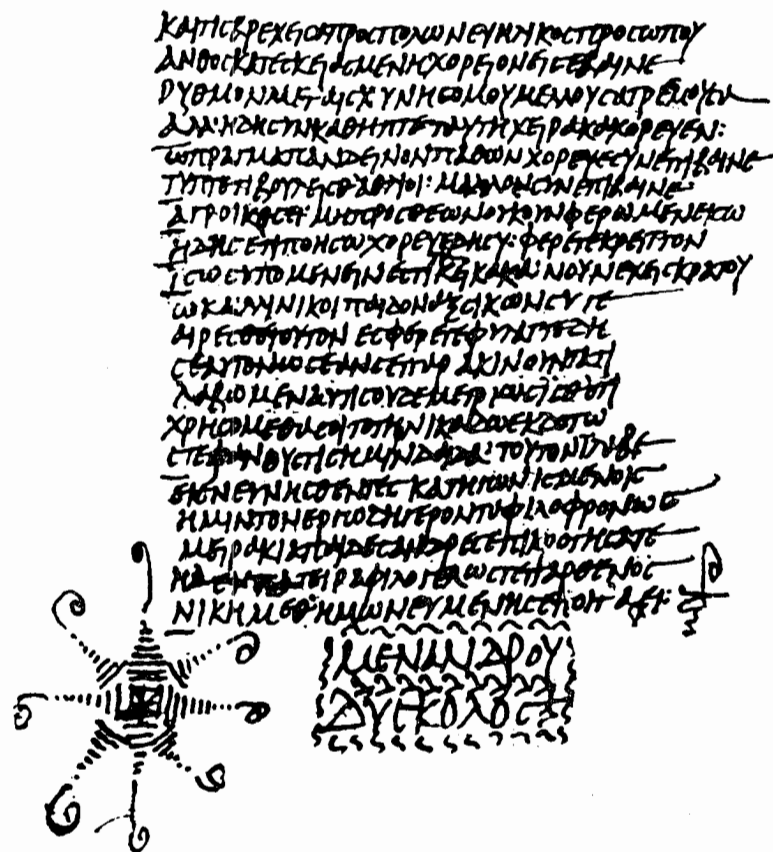 ΚΑΙΤΙΣΒΡΕΧΕΙΣΑΠΡΟΣΠΟΛΩΝΕΥΗΛΙΚΟΣΠΡΟΣΩΠΟΥ
ΑΝΘΟΣΚΑΤΕΣΚΕΙΑΣΜΕΝΗΧΟΡΕΙΟΝΕΙΣΕΒΑΙΝΕ
ΡΥΘΜΟΝΜΕΤΑΙΣΧΥΝΗΣΟΜΟΥΜΕΛΛΟΥΣΑΤΡΕΜΟΥΣΑ
ΑΛΛΗΔΗΣΥΝΚΑΘΗΠΤΕΤΑΥΤΗΧΕΙΡΑΚΑΧΟΡΕΥΕΝ:
ΩΠΡΑΓΜΑΠΑΝΔΕΙΝΟΝΠΑΘΩΝΧΟΡΕΥΕΣΥΝΕΠΙΒΑΙΝΕ
ΤΙΠΟΤΕΤΙΒΟΥΛΕΣΘΑΘΛΙΟΙ: ΜΑΛΛΟΝΣΥΝΕΠΙΒΑΙΝΕ
ΑΓΡΟΙΚΟΣΕΙ: ΜΗΠΡΟΣΘΕΩΝΟΥΚΟΥΝΦΕΡΩΜΕΝΕΙΣΩ
ΗΔΗΣΕΤΙΠΟΗΣΩΧΟΡΕΥΕΔΗΣΥ: ΦΕΡΕΤΕΚΡΕΙΤΤΟΝ
ΙΣΩΣΥΠΟΜΕΝΕΙΝΕΣΤΙΚΕΙΚΑΚΑ: ΝΟΥΝΕΧΕΙΣΚΡΑΤΟΥ
ΩΚΑΛΛΙΝΙΚΟΙΠΑΙΔΟΝΑΞΣΙΚΩΝΣΥΡΕ
ΑΙΡΕΣΘΕΤΟΥΤΟΝΕΣΦΕΡΕΤΕΦΥΛΑΤΤΕΔΗ
ΣΕΑΥΤΟΝΩΣΕΑΝΣΕΤΙΠΑΡΑΚΙΝΟΥΝΤΑΤΙ
ΛΑΒΩΜΕΝΑΥΤΙΣΟΥΔΕΜΕΤΡΙΩΣΙΣΘΟΤΙ
ΧΡΗΣΟΜΕΘΑΣΟΙΤΟΤΗΝΙΚΑΔΩΕΚΔΟΤΩ
ΣΤΕΦΑΝΟΥΣΤΙΣΗΜΙΝΔΑΙΔΑ: ΤΟΥΤΟΝΙΛΑΒΕ
ΕΙΕΝΣΥΝΗΣΘΕΝΤΕΣΚΑΤΗΓΩΝΙΣΜΕΝΟΙΣ
ΗΜΙΝΤΟΝΕΡΓΩΔΗΓΕΡΟΝΤΑΦΙΛΟΦΡΟΝΩΣ
ΜΕΙΡΑΚΙΑΠΑΙΔΕΣΑΝΔΡΕΣΕΠΙΚΡΟΤΗΣΑΤΕ
ΗΔΕΥΠΑΤΕΙΡΑΦΙΛΟΓΕΛΩΣΤΕΠΑΡΘΕΝΟΣ
ΝΙΚΗΜΕΘΗΜΩΝΕΥΜΕΝΗΣΕΠΟΙΤΑΕΙ:
ΜΕΝΑΝΔΡΟΥ
ΔΥΣΚΟΛΟΣ